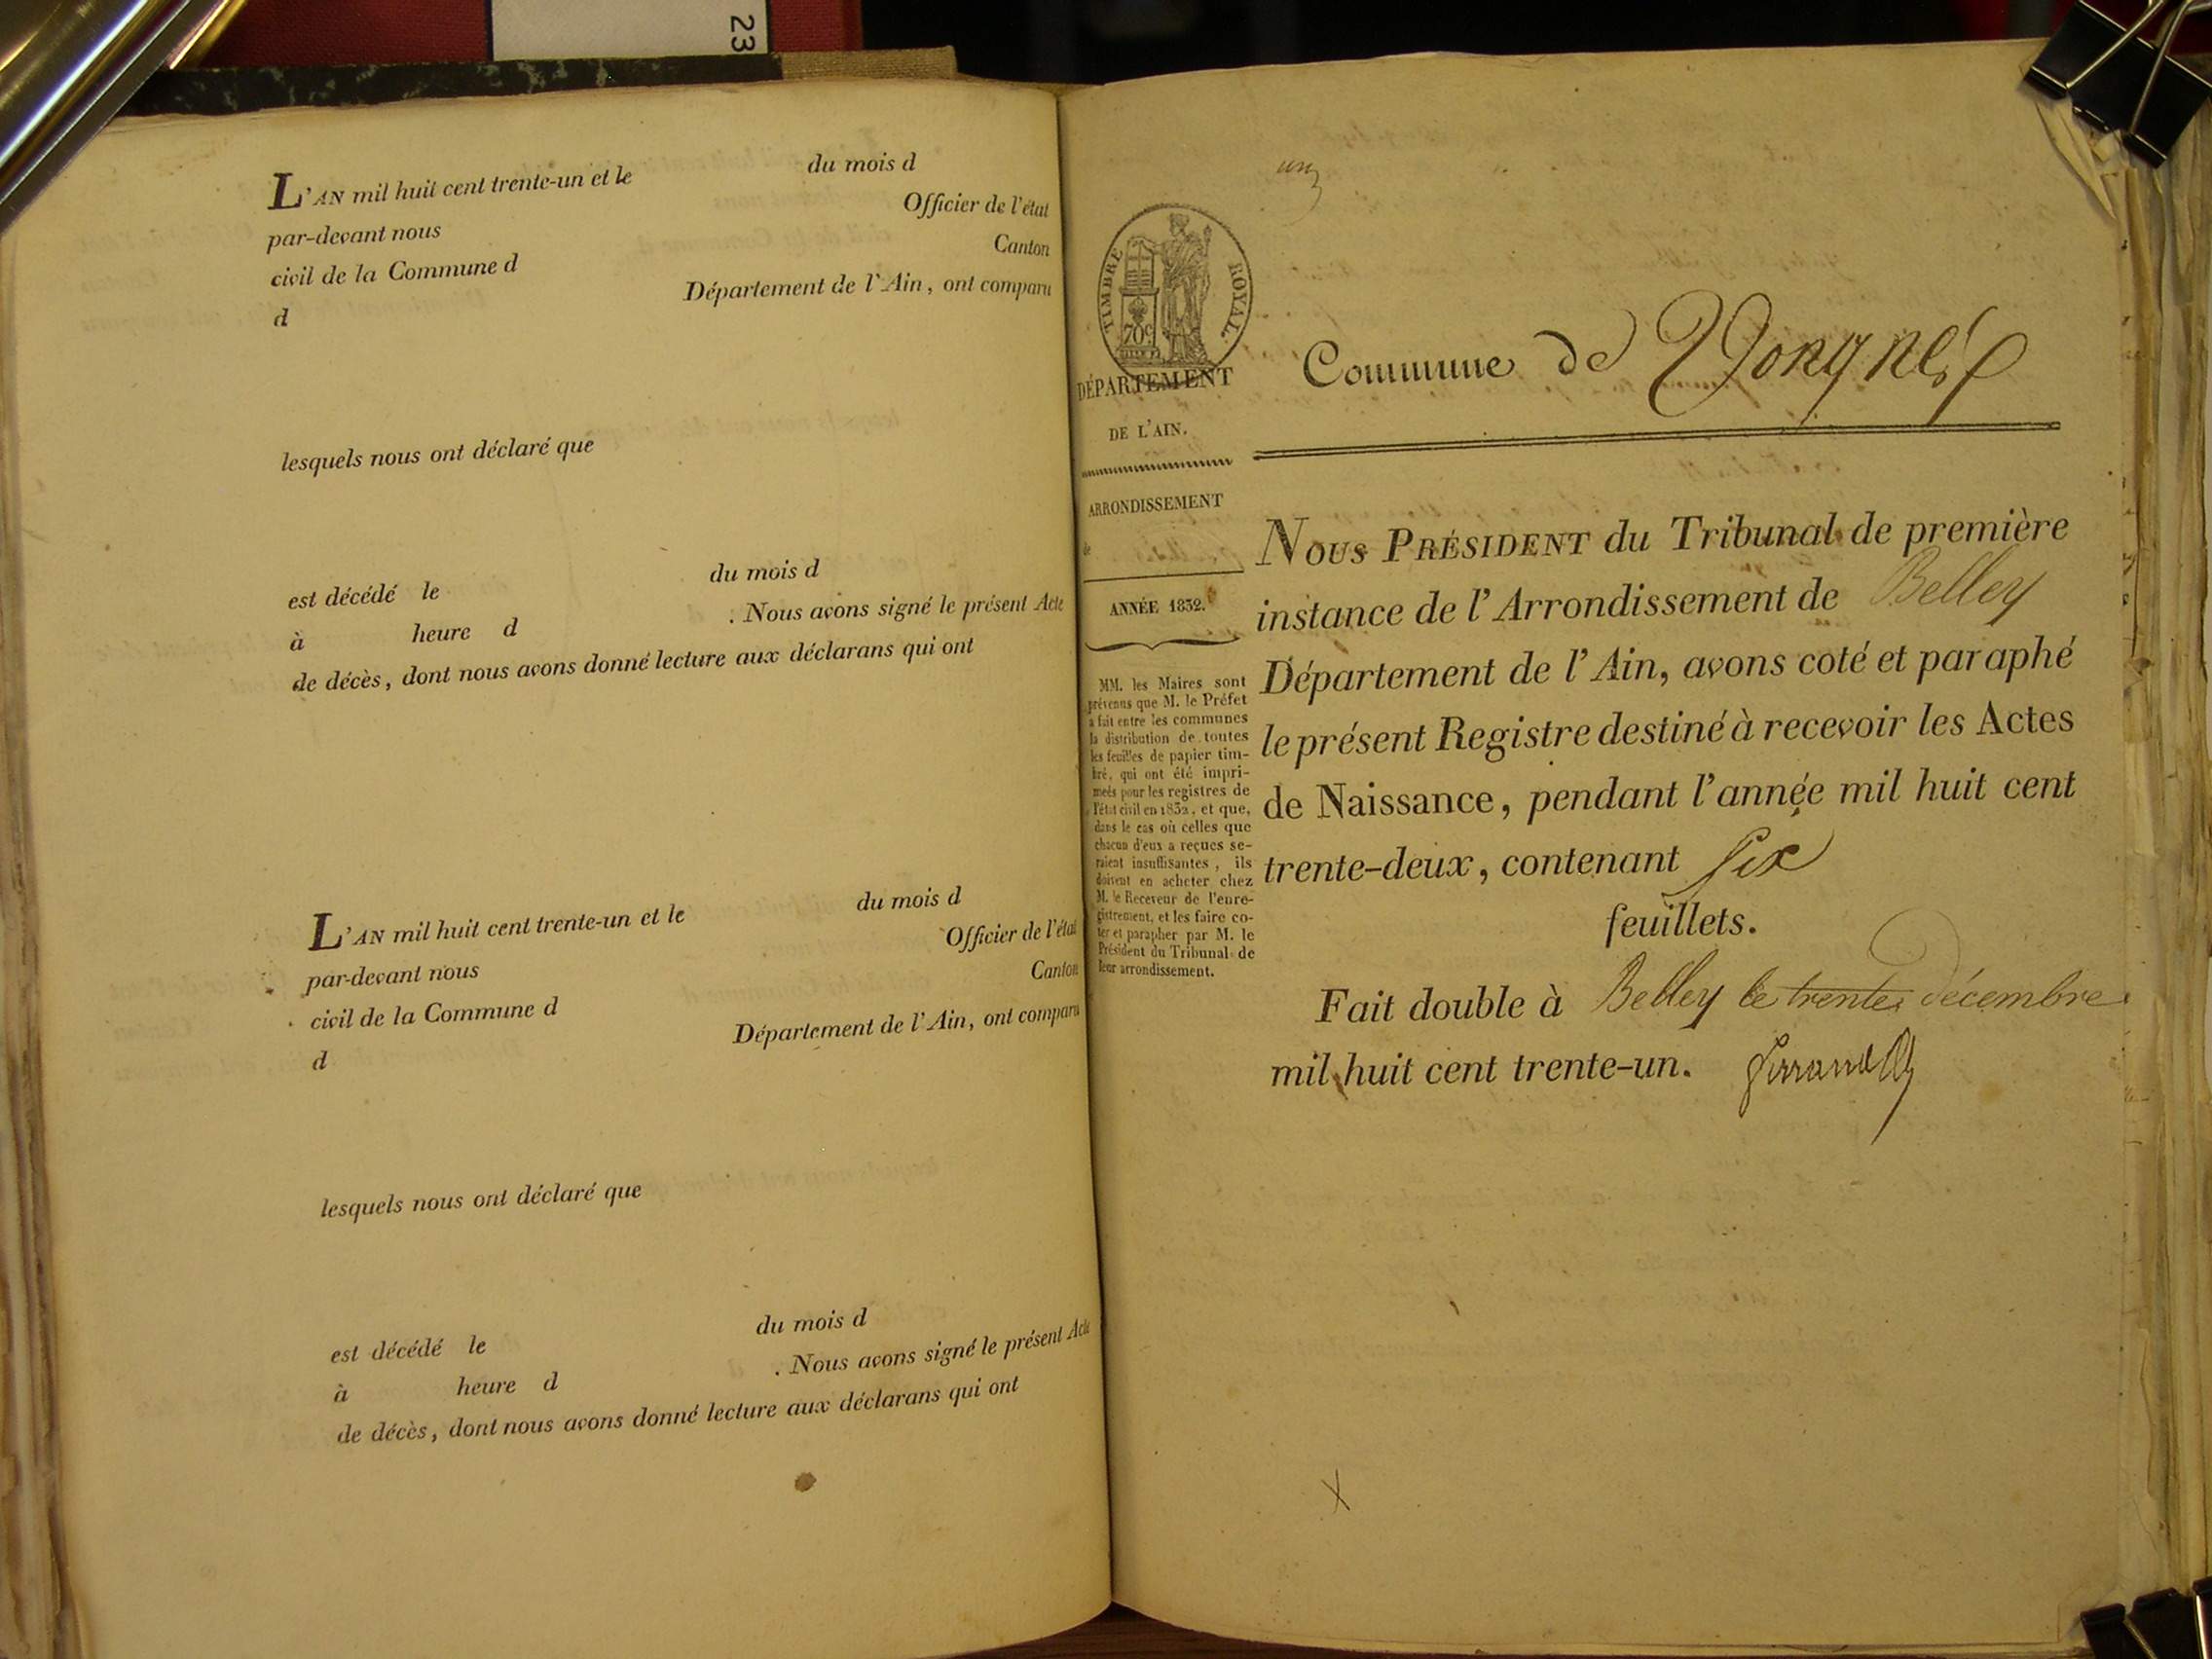 23
L'AN mil huit cent trente-un et le du mois d
par-devant nous Officier de l'état
civil de la Commune d Canton
d Département de l'Ain, ont comparu
lesquels nous ont déclaré que
est décédé le du mois d
à heure d . Nous avons signé le présent Acte
de décès, dont nous avons donné lecture aux déclarans qui ont
L'AN mil huit cent trente-un et le du mois d
par-devant nous Officier de l'état
civil de la Commune d Canton
d Département de l'Ain, ont comparu
lesquels nous ont déclaré que
est décédé le du mois d
à heure d . Nous avons signé le présent Acte
de décès, dont nous avons donné lecture aux déclarans qui ont
un
TIMBRE ROYAL
70c
DÉPARTEMENT
DE L'AIN.
ARRONDISSEMENT
de
ANNÉE 1832.
MM. les Maires sont
prévenus que M. le Préfet
a fait entre les communes
la distribution de toutes
les feuilles de papier tim-
bré, qui ont été impri-
meés pour les registres de
l'état civil en 1832, et que,
dans le cas où celles que
chacun d'eux a reçues se-
raient insuffisantes, ils
doivent en acheter chez
M. le Receveur de l'enre-
gistrement, et les faire co-
ter et parapher par M. le
Président du Tribunal de
leur arrondissement.
Commune de Vongnes
NOUS PRÉSIDENT du Tribunal de première
instance de l'Arrondissement de Belley
Département de l'Ain, avons coté et paraphé
le présent Registre destiné à recevoir les Actes
de Naissance, pendant l'année mil huit cent
trente-deux, contenant six
feuillets.
Fait double à Belley le trente décembre
mil huit cent trente-un.
X